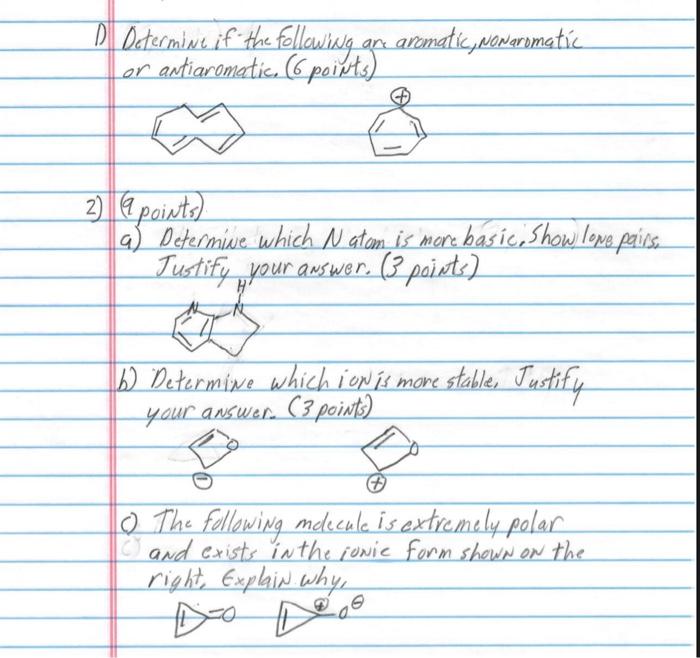 1) Determine if the following are aromatic, nonaromatic
or antiaromatic. (6 points)
+
2) (9 points)
a) Determine which N atom is more basic. Show lone pairs.
Justify your answer. (3 points)
H
N N
b) Determine which ion is more stable. Justify
your answer. (3 points)
O O
− +
c) The following molecule is extremely polar
and exists in the ionic form shown on the
right. Explain why.
=O + O −